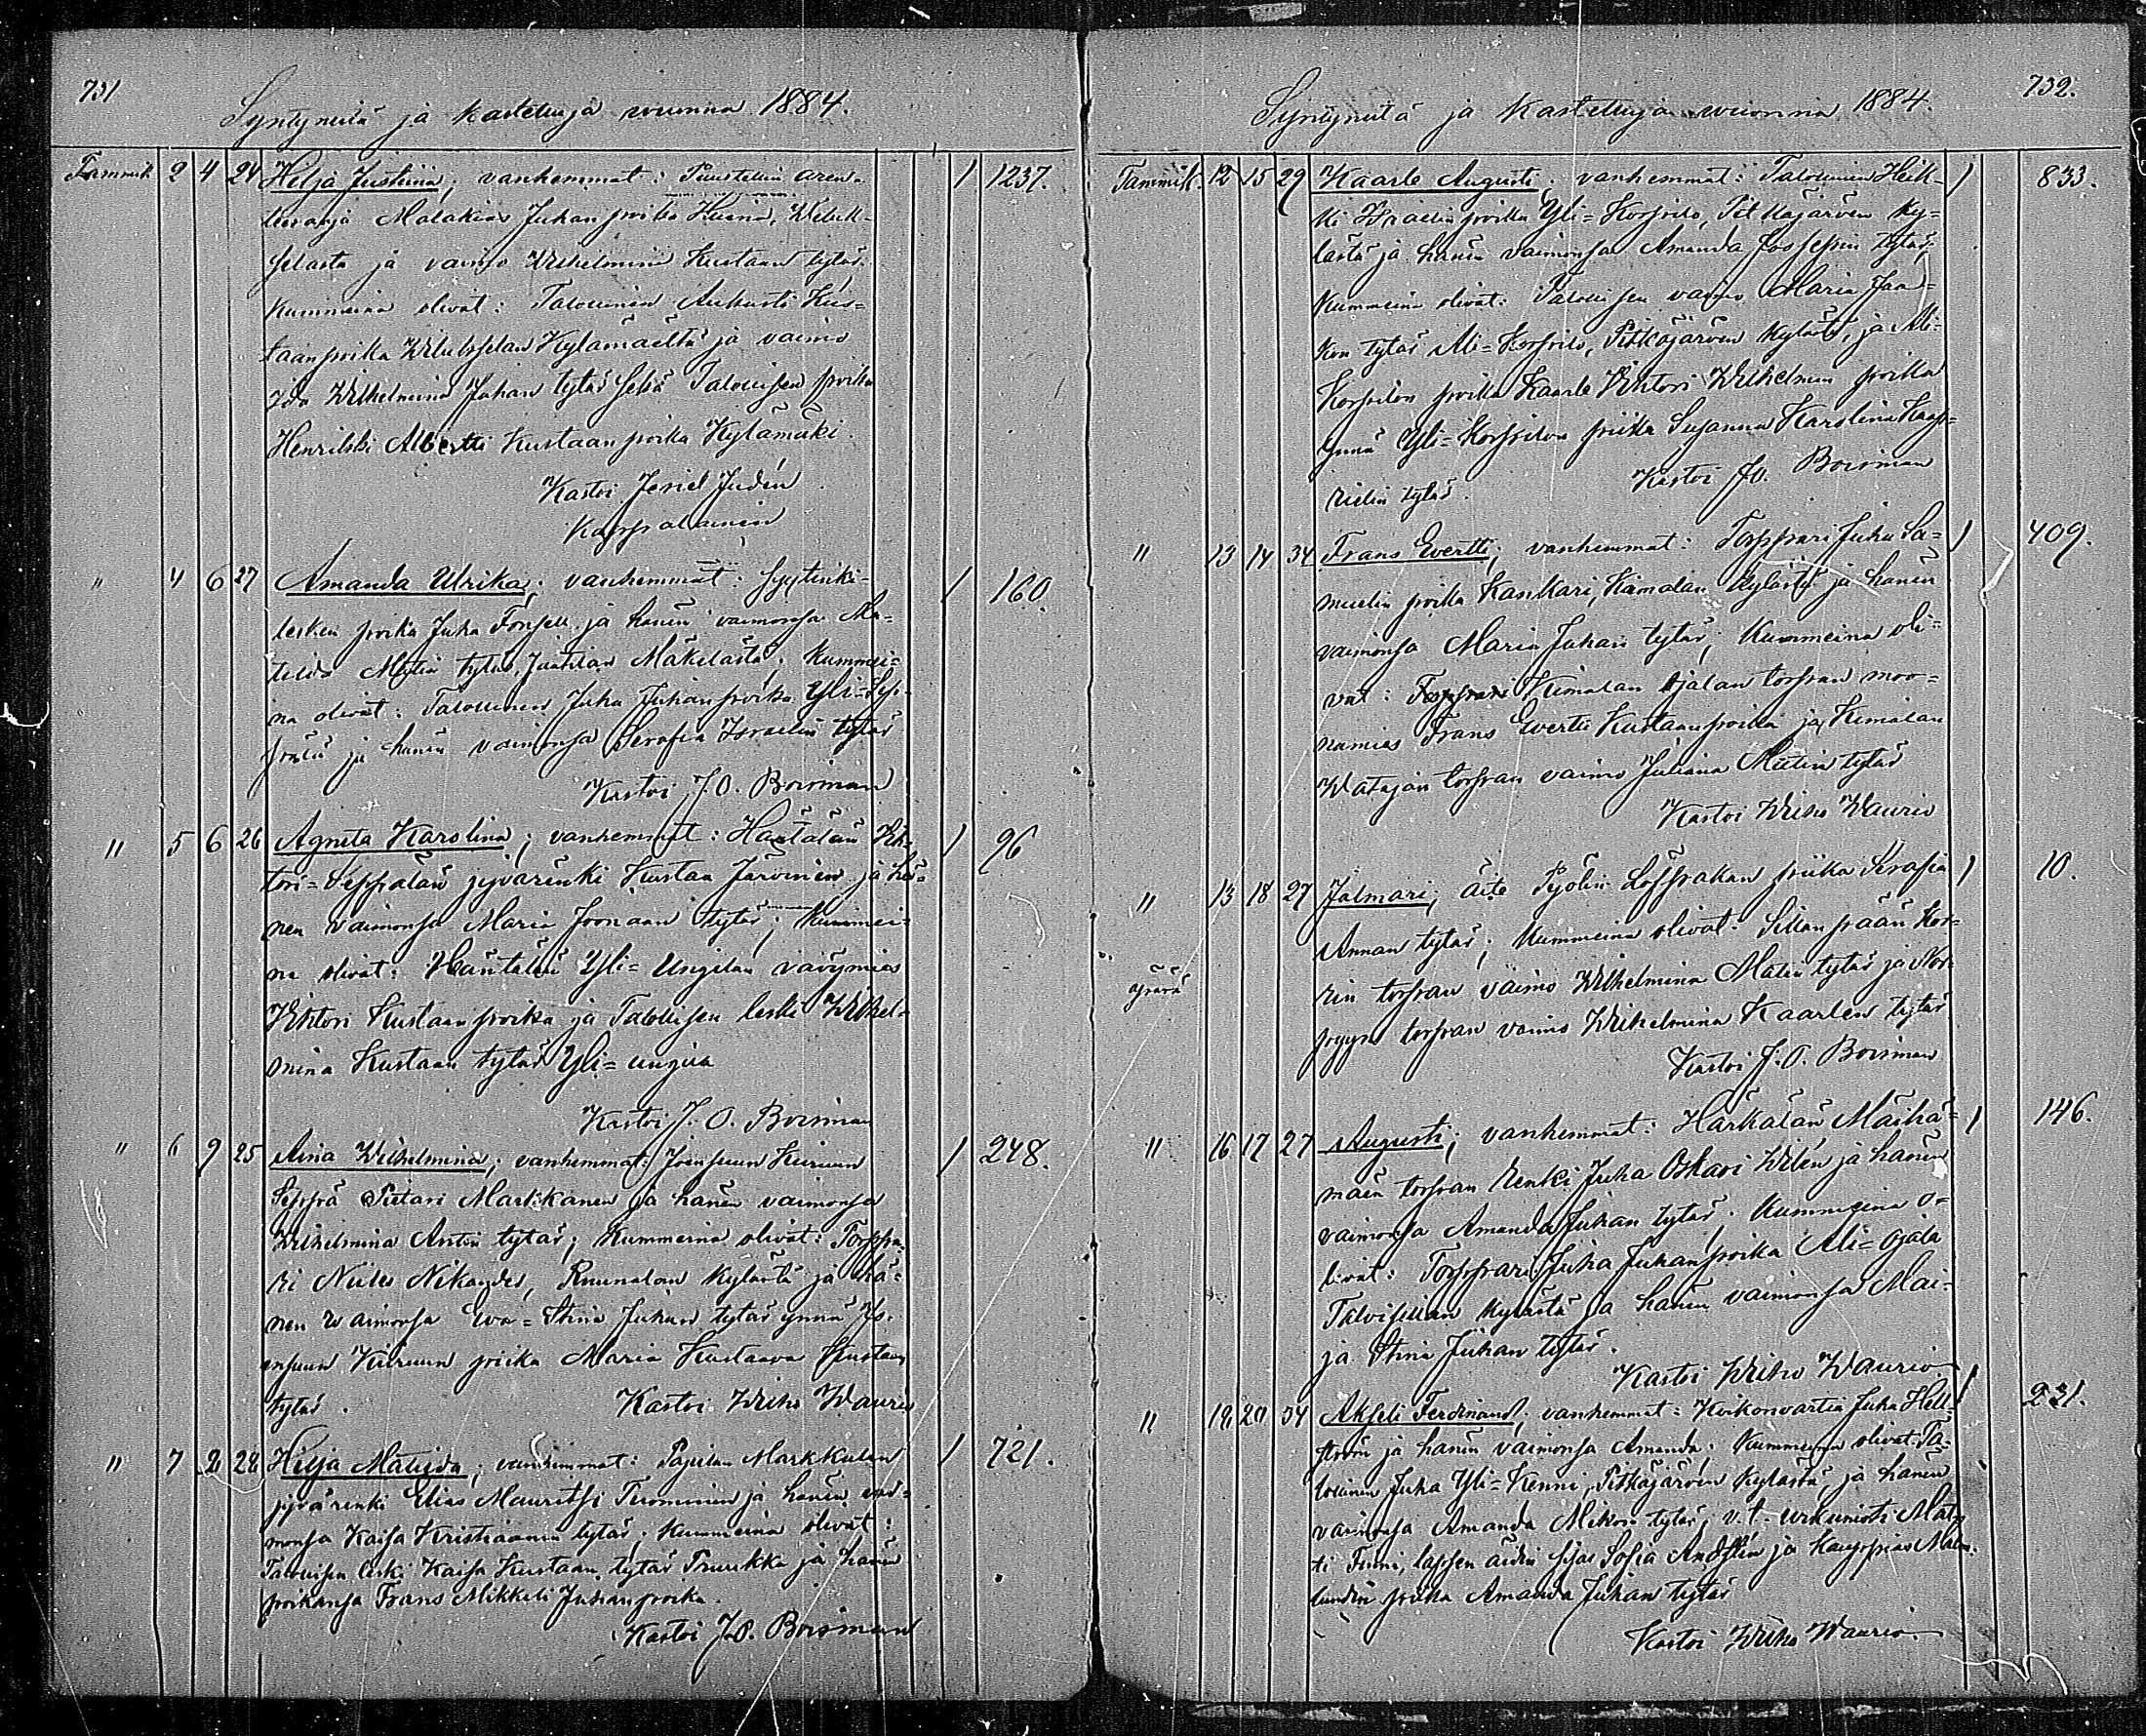 731
Syntyneitä ja kastettuja vuonna 1884.
Tammik. 2 4 24 Helja Justiina; vanhemmat: Puustellin aren- 1 1237.
Malakias Juhan poika
ja vaimo Wilhelmina Kustaan tytär.
Kummeina olivat: Talollinen Aukusti Kus-
taanpoika Kylämäeltä ja vaimo
Ida Wilhelmina Juhan tytär sekä Talollisen poika
Henrikki Albertti Kustaan poika Kylämäki.
Kastoi Jesiel Judén
Kappalainen
" 4 6 27 Amanda Ulrika; vanhemmat: Syytinki- 1 160.
lesken poika Juha Forsell ja hänen vaimonsa Ma-
tilda Matin tytär, Mäkelästä. Kummei-
na olivat: Talollinen Juha Juhanpoika Yli-Sep-
pälä ja hänen vaimonsa Serafia Israelin tytär
Kastoi J. O. Boisman
" 5 6 26 Agneta Karolina; vanhemmat: Häntälän 1 96
Seppälän jyvärenki Kustaa Järvinen ja hä-
nen vaimonsa Maria Joonaan tytär; Kummei-
na olivat: Häntälän Yli-Ungilan vävymies
Vihtori Kustaanpoika ja Talollisen leski Wilhel-
mina Kustaan tytär Yli-ungila
Kastoi J. O. Boisman
" 6 9 25 Aina Wilhelmina; vanhemmat: Joensuun Kuruun 1 248.
Seppä Pietari Markkanen ja hänen vaimonsa
Wilhelmina Antin tytär; Kummeina olivat: Torppa-
ri Niilo Nikander, Ruunalan Kylästä ja hä-
nen vaimonsa Eva-Stina Juhan tytär ynnä Jo-
ensuun piika Maria Kustaava Kustaan
tytär. Kastoi Wilho Waurio
" 7 2 28 Hilja Matilda; vanhemmat: Pajulan Markkulan 1 721.
jyvärenki Elias Mauritsi Tuominen ja hänen vai-
monsa Kaisa Kristiaanin tytär; Kummeina olivat:
Talollisen leski Kaisa Kustaan tytär Pruukka ja hänen
poikansa Frans Mikkeli Juhanpoika.
Kastoi J. O. Boisman
732.
Syntyneitä ja Kastettuja vuonna 1884.
Tammik. 12 15 29 Kaarle Augusti; vanhemmat: Talollinen Heik- 1 833.
ki Israelin poika Yli-Korpilo, Pitkäjärven ky-
lästä ja hänen vaimonsa Amanda Joosepin tytär;
Kummeina olivat: Talollisen vaimo Maria Jaa-
kon tytär Ali-Korpilo, Pitkäjärven kylästä, ja Ali-
Korpilon poika Kaarle Vihtori Wilhelmin poika
ynnä Yli-Korpilon piika Susanna Karolina Kaap-
rielin tytär. Kastoi J. O. Boisman
" 13 14 34 Frans Evertti; vanhemmat: Torppari Juha Sa- 1 409.
muelin poika Kankari, Kimalan kylästä ja hänen
vaimonsa Maria Juhan tytär; Kummeina oli-
vat: Torppari Kimalan Ojalan torpan
Frans Evertti Kustaanpoika ja Kimalan
Watajan torpan vaimo Juliana Matin tytär
Kastoi Wilho Waurio
" 13 18 27 Jalmari, äite Työlin piika Serafia 1 10.
Annan tytär; Kummeina olivat: Sillanpään Kor-
äpärä
rin torpan vaimo Wilhelmina Matin tytär ja
torpan vaimo Wilhelmina Kaarlen tytär
Kastoi J. O. Boisman
" 16 17 27 Augusti; vanhemmat: Härkälän Mäihä- 1 146.
mäen torpan renki Juha Oskari Wilén ja hänen
vaimonsa Amanda Juhan tytär. Kummeina o-
livat: Torppari Juha Juhanpoika Ali-Ojala
Talvisillan kylästä ja hänen vaimonsa Mai-
ja Stina Juhan tytär.
Kastoi Wilho Waurio
" 18 20 34 Akseli Ferdinand; vanhemmat: Juha Hell- 1 231.
ström ja hänen vaimonsa Amanda. Kummeina olivat: Ta-
lollinen Juha Yli-Kenni, Pitkäjärven kylästä, ja hänen
vaimonsa Amanda Mikon tytär; v.t. urkunisti Mat-
ti Finni, lapsen äidin sisar Sofia ja Kauppias Malm-
lundin piika Amanda Juhan tytär
Kastoi Wilho Waurio